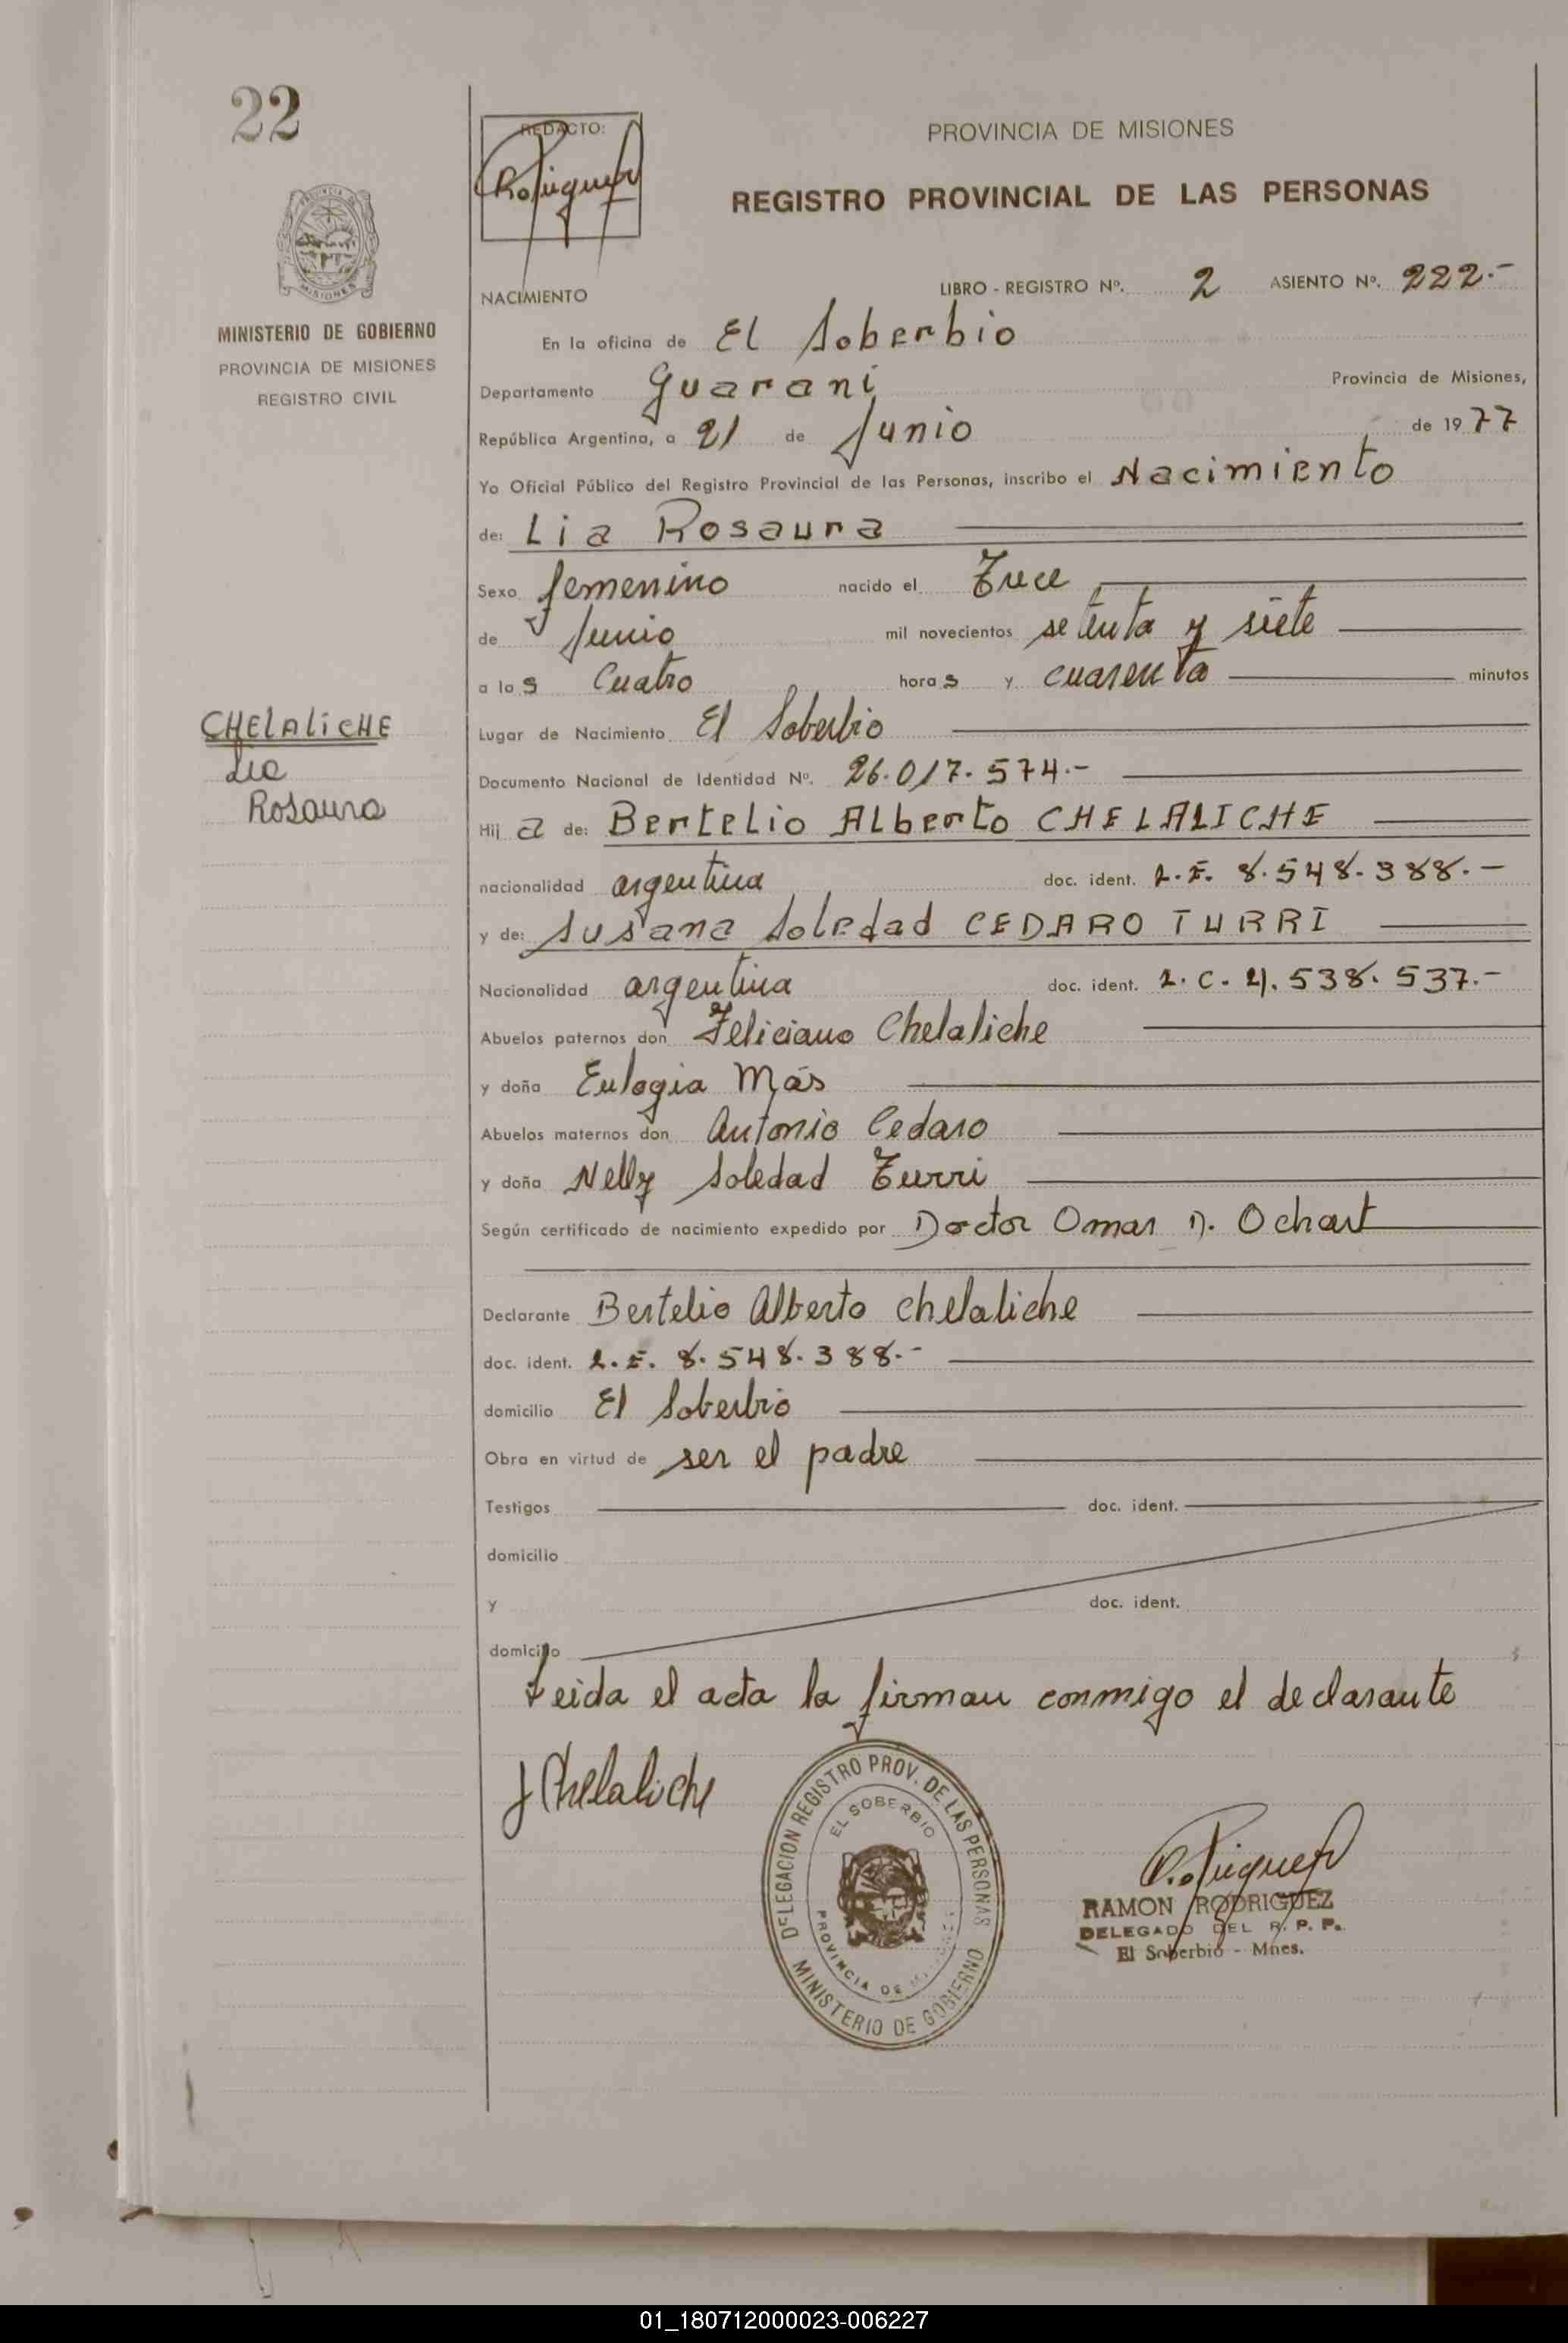 22
REDACTO:
PROVINCIA DE MISIONES
REGISTRO PROVINCIAL DE LAS PERSONAS
MISIONES
MINISTERIO DE GOBIERNO
PROVINCIA DE MISIONES
REGISTRO CIVIL
NACIMIENTO LIBRO - REGISTRO Nº. 2 ASIENTO Nº. 222.-
En la oficina de El Soberbio
Departamento Guarani Provincia de Misiones,
República Argentina, a 21 de Junio de 1977
Yo Oficial Público del Registro Provincial de las Personas, inscribo el Nacimiento
de: Lia Rosaura
Sexo femenino nacido el Trece
de Junio mil novecientos setenta y siete
a las Cuatro horas y cuarenta minutos
Lugar de Nacimiento El Soberbio
CHELALICHE
Lia
Rosaura
Documento Nacional de Identidad Nº. 26.017.574.-
Hija de: Bertelio Alberto CHELALICHE
nacionalidad argentina doc. ident. L.E. 8.548.388.-
y de: Susana Soledad CEDARO TURRI
Nacionalidad argentina doc. ident. L.C. 4.538.537.-
Abuelos paternos don Feliciano Chelaliche
y doña Eulogia Más
Abuelos maternos don Antonio Cedaro
y doña Nelly Soledad Turri
Según certificado de nacimiento expedido por Doctor Omar D. Ochart
Declarante Bertelio Alberto Chelaliche
doc. ident. L.E. 8.548.388.-
domicilio El Soberbio
Obra en virtud de ser el padre
Testigos doc. ident.
domicilio
y doc. ident.
domicilio
Leida el acta la firman conmigo el declarante
Chelaliche
DELEGACION REGISTRO PROV. DE LAS PERSONAS
EL SOBERBIO
PROVINCIA DE
MINISTERIO DE GOBIERNO
RAMON RODRIGUEZ
DELEGADO DEL R. P. P.
El Soberbio - Mnes.
01_180712000023-006227